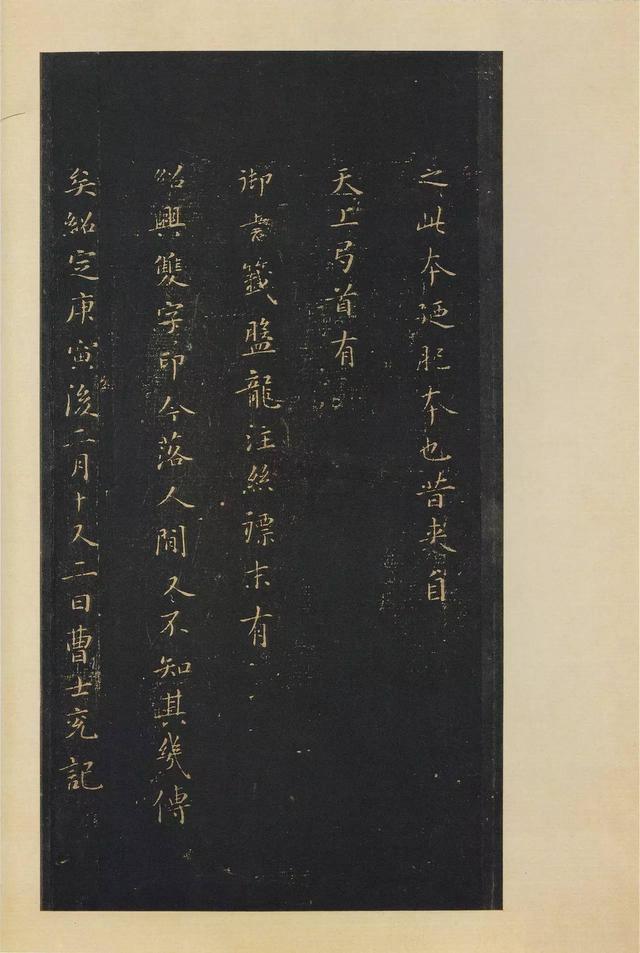 之此本廼肥本也昔来自
天上首有
御書籤盤龍注絲褾末有
紹興雙字印今落人間又不知其幾傳
矣紹定庚寅後二月十又二日曹士冕記